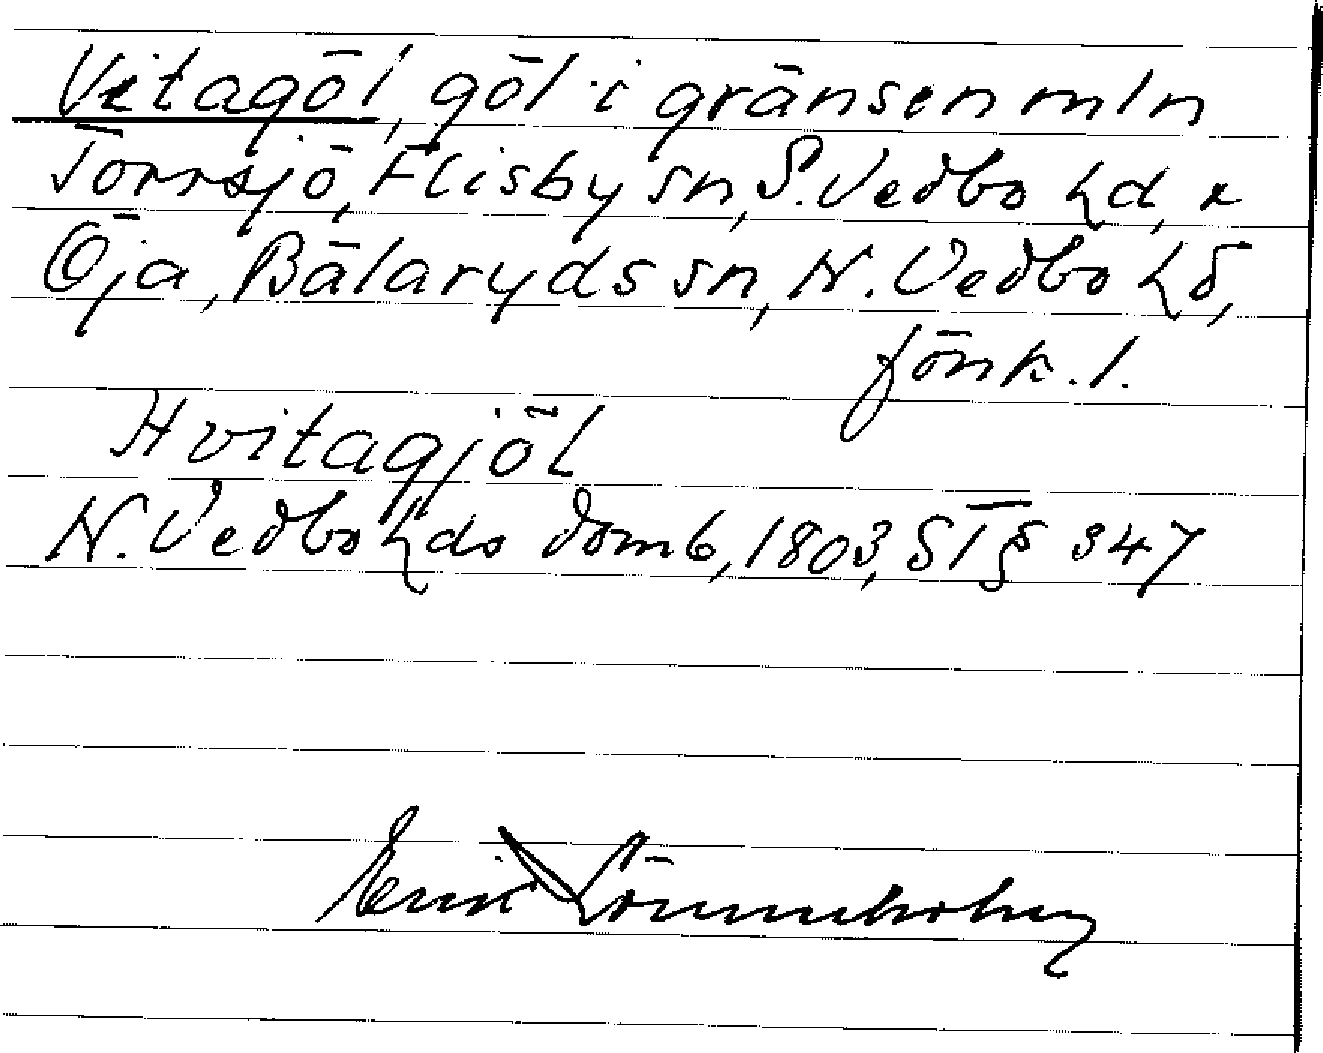 Vitagöl, göl i gränsen mln
Torrsjö, Flisby sn, S. Vedbo hd, x
Öja, Bälaryds sn, N. Vedbo hd,
Jönk. l.
Hvitagjöl
N. Vedbo hds domb, 1803, ST § 347
Erik Lönnerholm